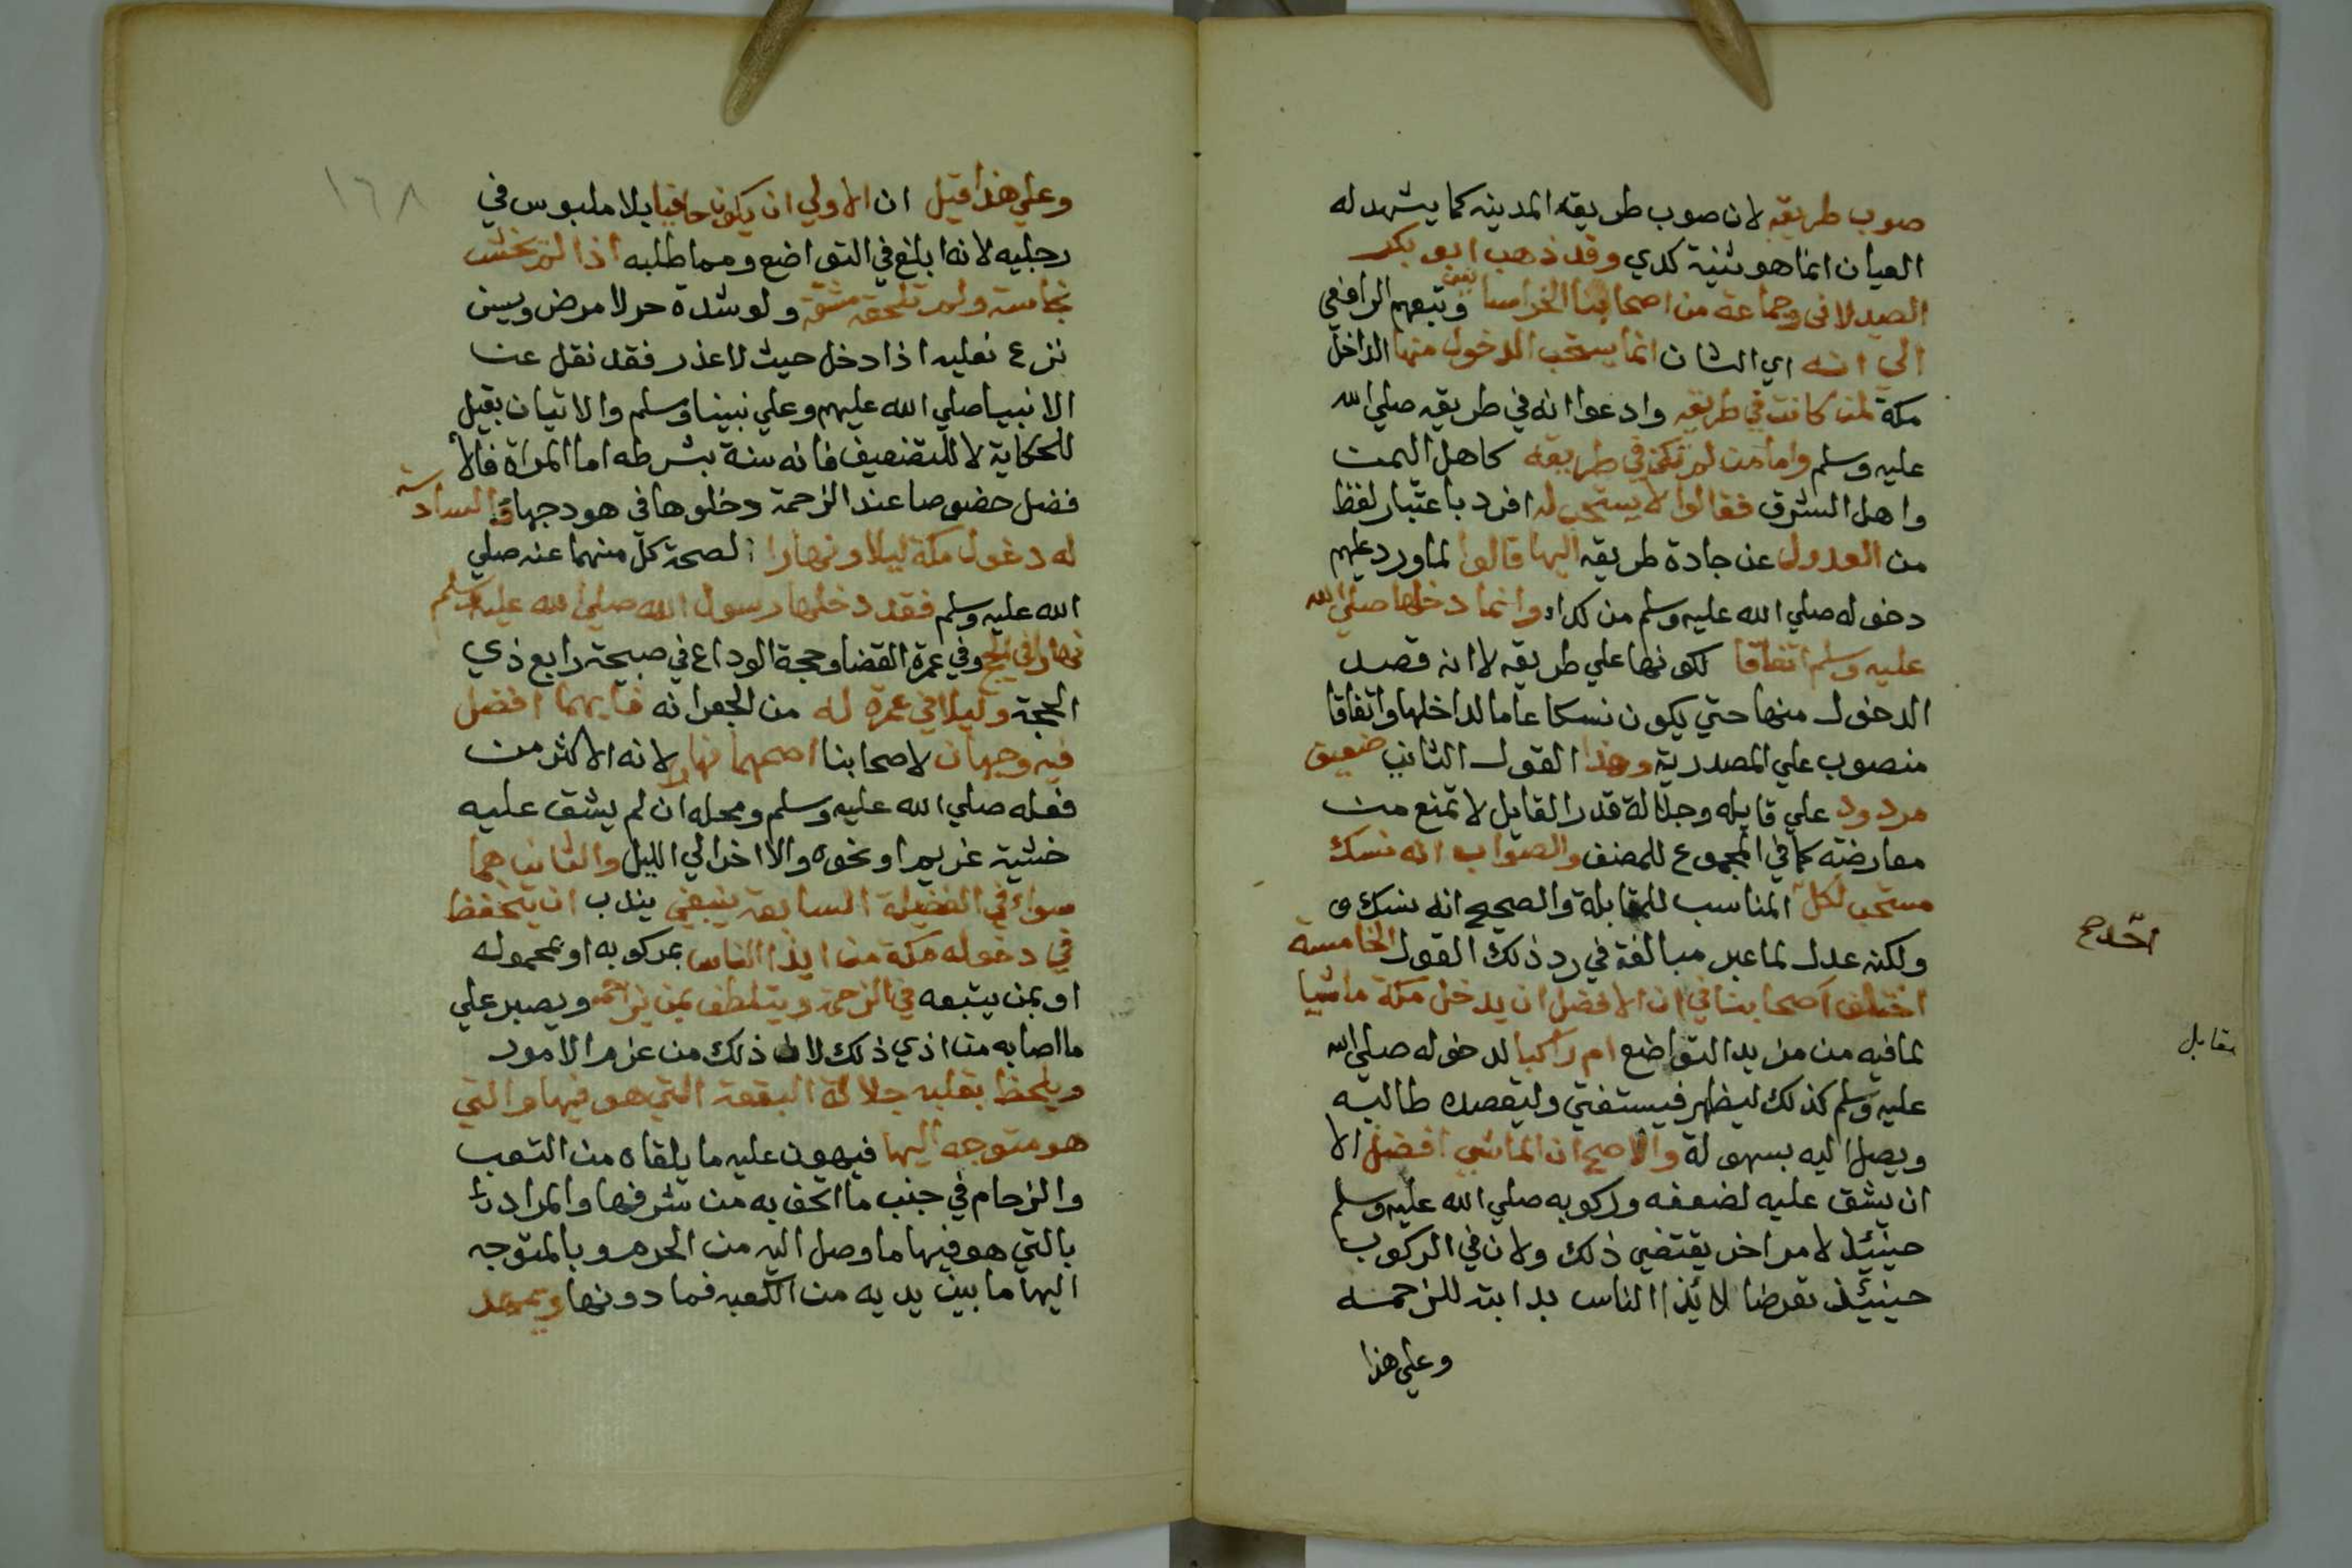 صوب طريقه لان صوب طريقه المدينه كما يشهد له
العيان انما هو ثنية كدي وقد ذهب ابو بكر
الصيدلاني وجماعة من اصحابنا الخراسانيين وتبعهم الرافعي
الي انه اي الشان انما يستحب الدخول منها الداخل
مكة لمن كانت في طريقه وادعوا انه في طريقه صلي الله
عليه وسلم واما من لم تكن في طريقه كاهل اليمن
واهل الشرق فقالوا لا يستحب له افرد باعتبار لفظ
من العدول عن جادة طريقه اليها قالوا لما ورد عليهم
دخوله صلي الله عليه وسلم من كداء وانما دخلها صلي الله
عليه وسلم اتفاقا لكونها علي طريقه لا انه قصد
الدخول منها حتي يكون نسكا عاما لداخلها واتفاقا
منصوب علي المصدرية وهذا القول الثاني ضعيف
مردود علي قايله وجلالة قدر القايل لا تمنع من
معارضته كما في المجموع للمصنف والصواب انه نسك
مستحب لكل المناسب للمقابلة والصحيح انه نسك
ولكنه عدل لما عبر مبالغة في رد ذلك القول الخامسة
اختلف اصحابنا في ان الافضل ان يدخل مكة ماشيا
لما فيه من مزيد التواضع ام راكبا لدخوله صلي الله
عليه وسلم كذلك ليظهر فيستفتي وليقصده طالبه
ويصل اليه بسهولة والاصح ان الماشي افضل الا
ان يشق عليه لضعفه وركوبه صلي الله عليه وسلم
حينئذ لامر اخر يقتضي ذلك ولان في الركوب
حينئذ تعرضا لائذا الناس بدابته للزحمه
وعلي هذا
مقابل
١٦٨
وعلي هذا قيل ان الاولي ان يكون حافيا بلا ملبوس في
رجليه لانه ابلغ في التواضع ومما طلبه اذا لم يخش
نجاسة ولم تلحقه مشقة ولو شدة حر لا مرض ويسن
نزع نعليه اذا دخل حيث لا عذر فقد نقل عن
الانبيا صلي الله عليهم وعلي نبينا وسلم والاتيان بقيل
للحكاية لا للتضعيف فانه سنة بشرطه اما المراة فالا
فضل خصوصا عند الزحمة دخلوها في هودجها السادسة
له دخول مكة ليلا ونهارا لصحة كل منهما عنه صلي
الله عليه وسلم فقد دخلها رسول الله صلي الله عليه وسلم
نهارا في الحج وفي عمرة القضا وحجة الوداع في صبيحة رابع ذي
الحجة وليلا في عمرة له من الجعرانه فايهما افضل
فيه وجهان لاصحابنا اصحهما نهارا لانه الاكثر من
فعله صلي الله عليه وسلم ومحله ان لم يشق عليه
خشية غريم او نحوه والا اخر الي الليل والثاني هما
سواء في الفضيلة السابعة ينبغي يندب ان يتحفظ
في دخوله مكة من ايذا الناس بمركوبه او بمحموله
او بمن يتبعه في الزحمة ويتلطف بمن يزاحمه ويصبر علي
ما اصابه من اذي ذلك لان ذلك من عزم الامور
ويلحظ بقلبه جلالة البقعة التي هو فيها والتي
هو متوجه اليها فيهون عليه ما يلقاه من التعب
والزحام في جنب ما اتحف به من شرفها والمراد
بالتي هو فيها ما وصل اليه من الحرم وبالمتوجه
اليها ما بين يديه من الكعبه فما دونها ويمهد